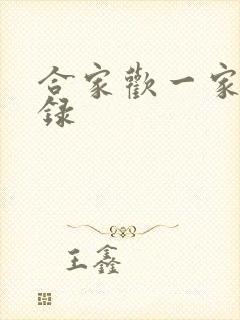 合家歡一家
錄
王鑫